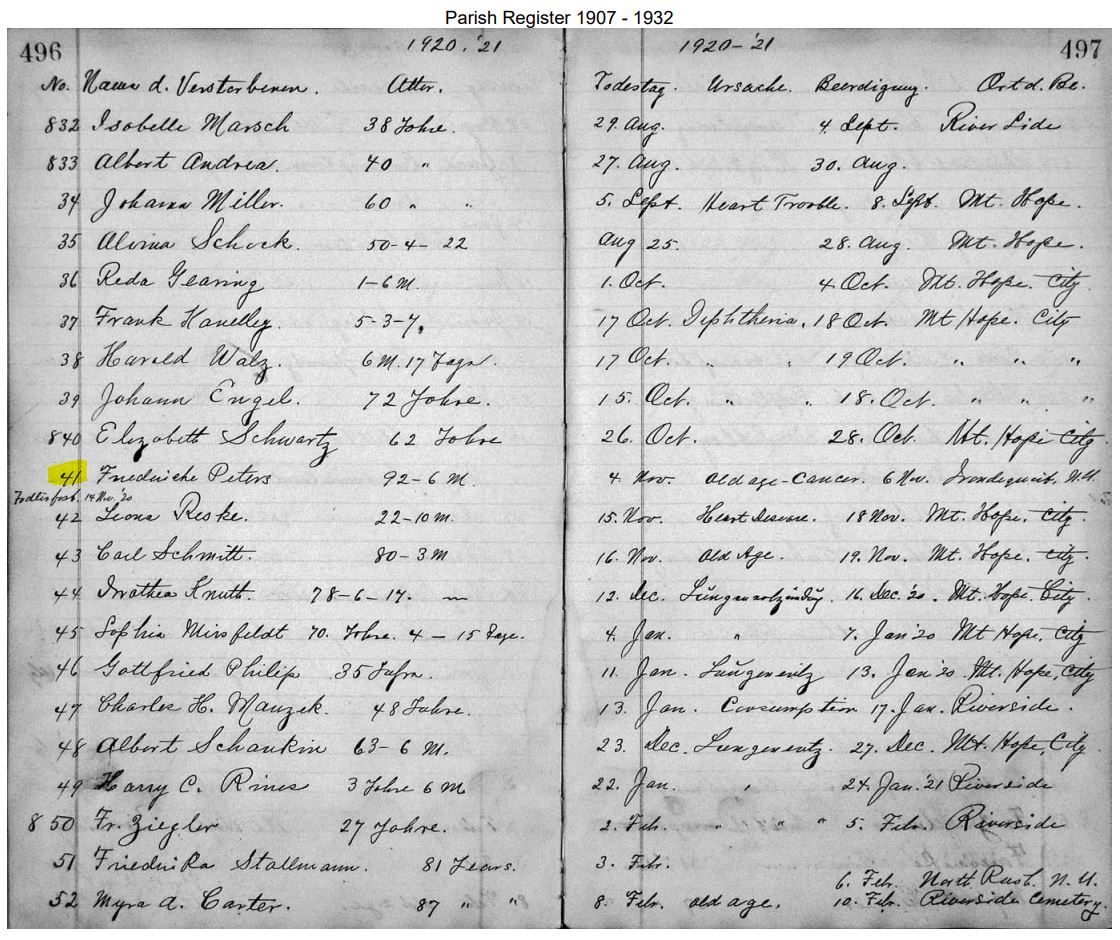 Parish Register 1907 - 1932
496 1920.'21
No. Name d. Verstorbenen. Alter.
832 Isobelle Marsch 38 Johre.
833 Albert Andrea. 40 "
34 Johann Miller. 60 " "
35 Alvina Schock. 50-4-22
36 Reda Gearing 1-6 M.
37 Frank Hanelley. 5-3-7.
38 Harald Walz. 6 M. 17 Tage.
39 Johann Engel. 72 Johre.
840 Elizabett Schwartz 62 Johre
41 Friedricke Peters 92-6 M.
14 Nov. '20
42 Leona Reske. 22-10 M.
43 Carl Schmitt. 80-3 M
44 Dorothea Knutt. 78-6-17. "
45 Sophia Mirsfeldt 70. Johre. 4 - 15 Tage.
46 Gottfried Philip 35 Jahre.
47 Charles H. Manzek. 48 Johre.
48 Albert Schankin 63-6 M.
49 Harry C. Rines 3 Johre 6 M
850 Fr. Ziegler 27 Johre.
51 Friedrika Stallmann. 81 Years.
52 Myra A. Carter. 87 " "
1920-'21 497
Todestag. Ursache. Beerdigung. Ort d. Be.
29. Aug. 4. Sept. River Side
27. Aug. 30. Aug.
5. Sept. Heart Trouble. 8. Sept. Mt. Hope.
Aug 25. 28. Aug. Mt. Hope.
1. Oct. 4 Oct. Mt. Hope. City.
17 Oct. Diphtheria. 18 Oct. Mt Hope. City
17 Oct. " " 19 Oct. " " "
15. Oct. " " 18. Oct. " " "
26. Oct. 28. Oct. Mt. Hope City.
4. Nov. Old age-Cancer. 6 Nov. Irondequoit, N.Y.
15. Nov. Heart Disease. 18 Nov. Mt. Hope. City.
16. Nov. Old Age. 19. Nov. Mt. Hope. City.
12. Dec. Lungenentzündung. 16. Dec. '20. Mt. Hope City.
4. Jan. " 7. Jan '20 Mt Hope, City
11. Jan. Lungenentz 13. Jan '20. Mt. Hope, City
13. Jan. Consumption 17. Jan. Riverside.
23. Dec. Lungenentz. 27. Dec. Mt. Hope, City
22. Jan. " 24. Jan. '21 Riverside
2. Feb. " " " 5. Feb. Riverside
3. Feb. 6. Feb. North Rush. N.Y.
8. Feb. Old age. 10. Feb. Riverside Cemetery.